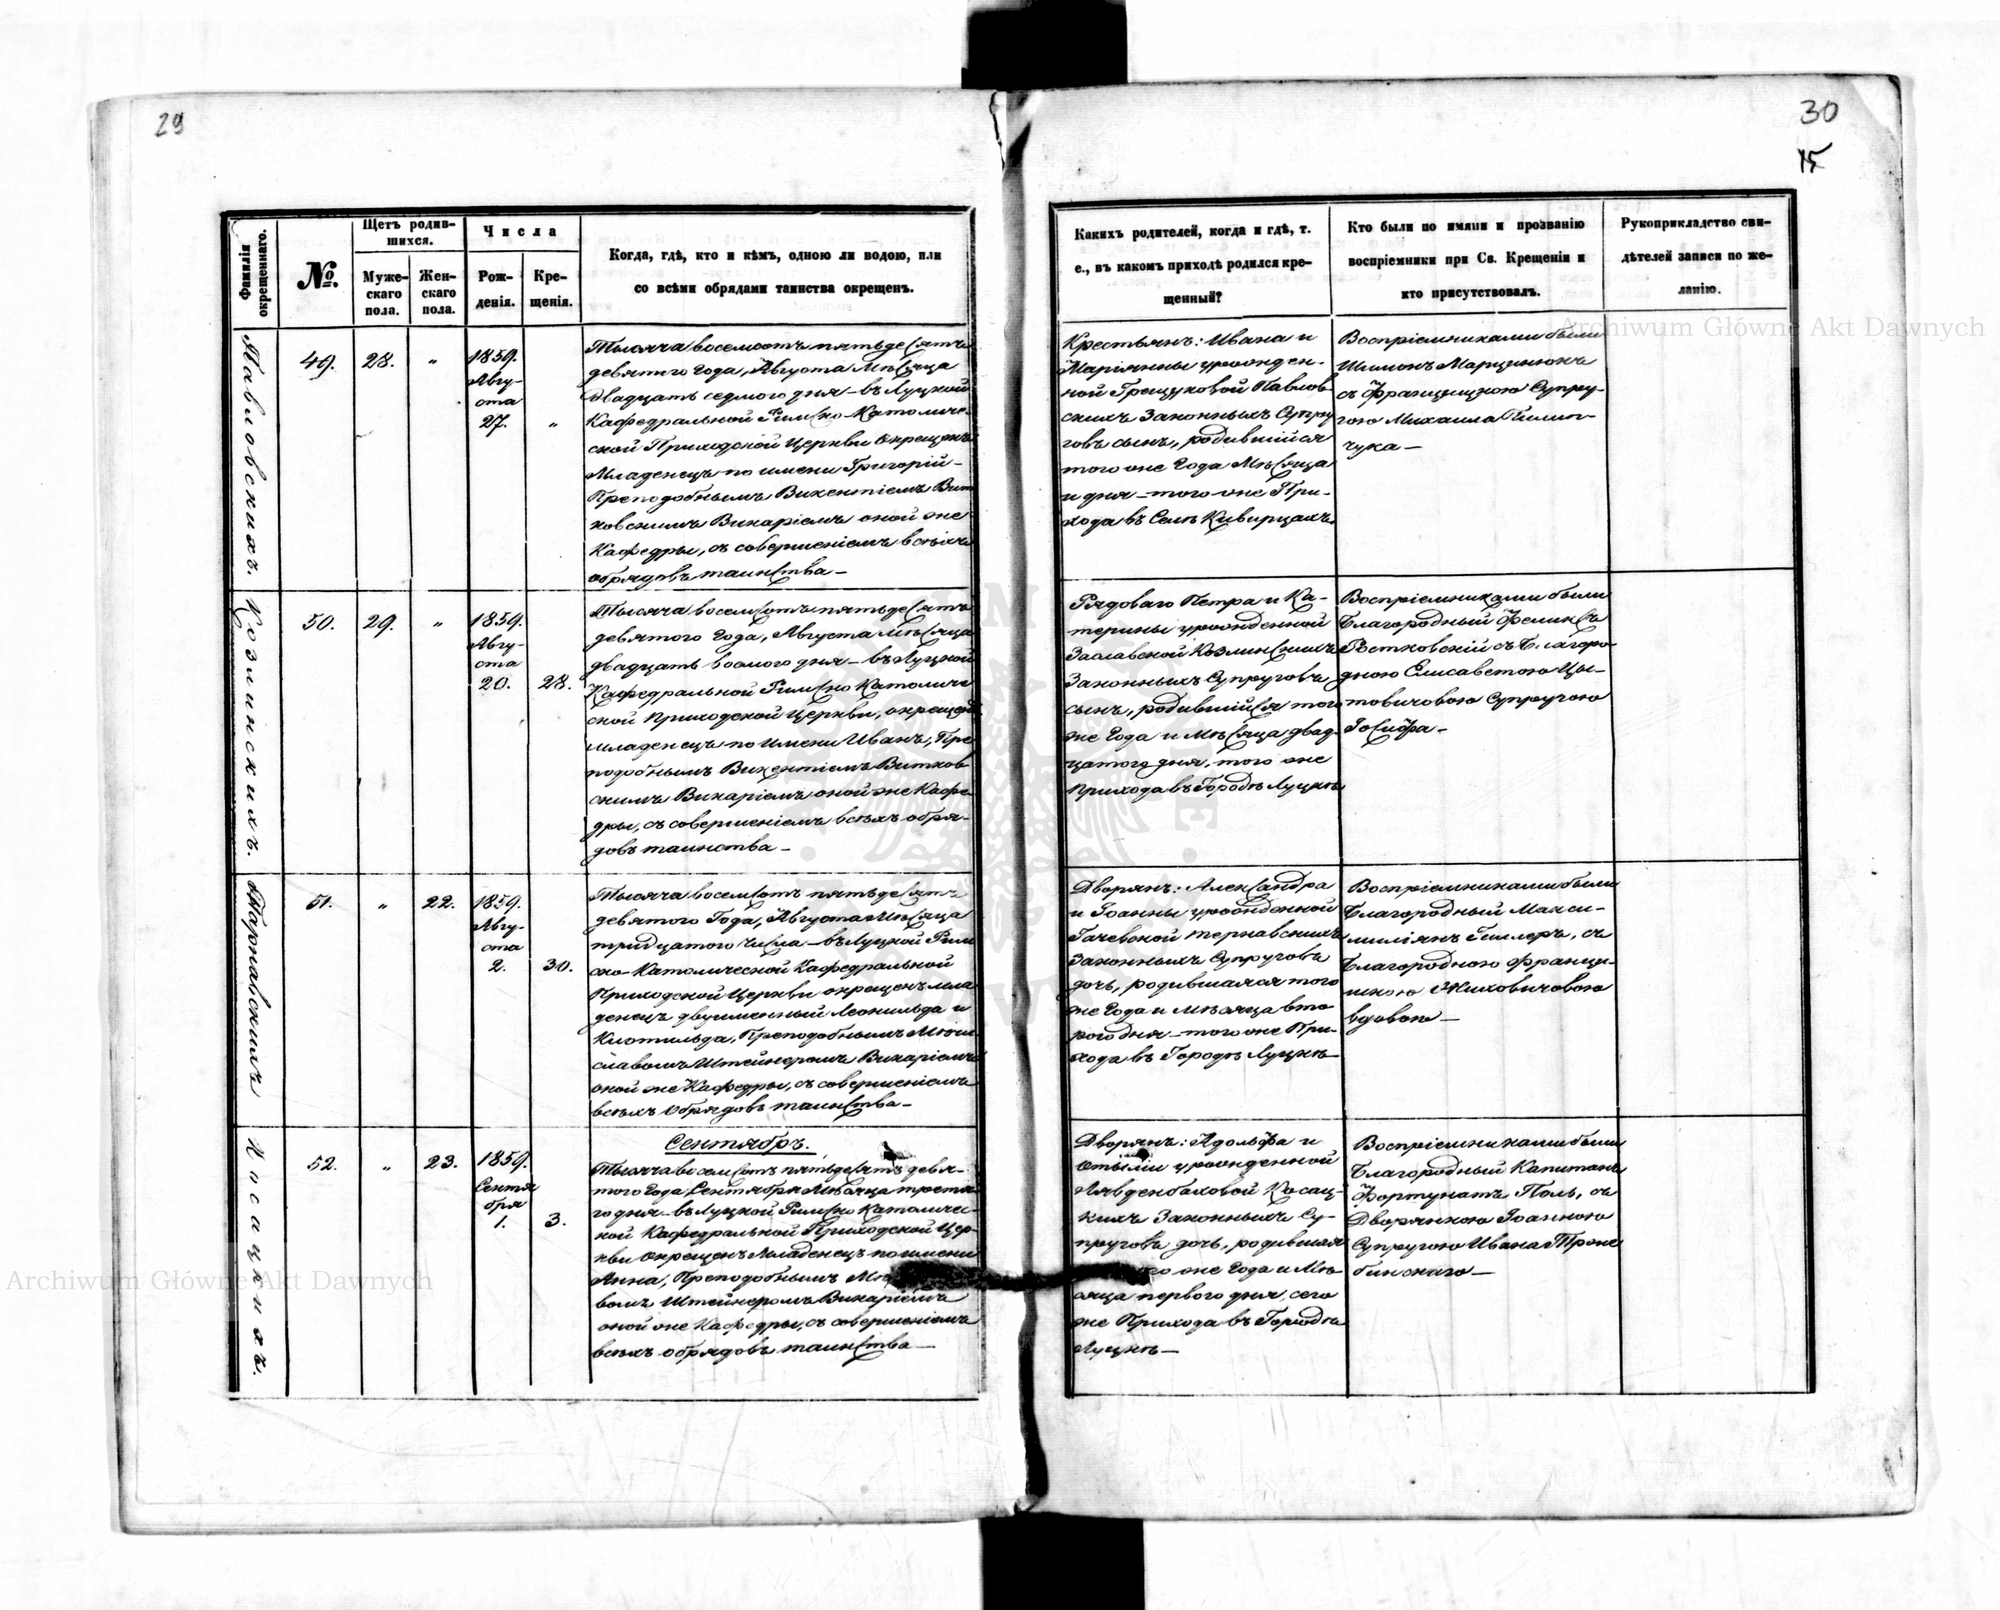 29
Фамилія окрещеннаго.
№.
Щетъ родив-
шихся.
Муже-
скаго
пола.
Жен-
скаго
пола.
Числа
Рож-
денія.
Кре-
щенія.
Когда, гдѣ, кто и кѣмъ, одною ли водою, или
со всѣми обрядами таинства окрещенъ.
Павловскихъ.
49.
28.
"
1859.
Авгу-
ста
27.
"
Тысяча восемсотъ пятьдесятъ
девятого Года, Августа Мѣсяца
двадцать седмого дня – въ Луцкой
Кафедральной Римско-Католиче-
ской Приходской Церкви окрещенъ
Младенецъ по имени Григорій –
Преподобнымъ Викентіемъ Вит
ковскимъ Викаріемъ оной же
Кафедры, съ совершеніемъ всѣхъ
обрядовъ таинства –
Козминскихъ.
50.
29.
"
1859.
Авгу-
ста
20.
28.
Тысяча восемсотъ пятьдесятъ
девятого Года, Августа Мѣсяца
двадцать восмого дня – въ Луцкой
Кафедральной Римско Католиче
ской Приходской Церкви, окрещенъ
младенецъ по имени Иванъ, Пре
подобнымъ Викентіемъ Витков
скимъ Викаріемъ оной же Кафе-
дры, съ совершеніемъ всѣхъ обря-
довъ таинства –
Тарнавскихъ
51.
"
22.
1859.
Авгу-
ста
2.
30.
Тысяча восемсотъ пятьдесятъ
девятого Года, Августа Мѣсяца
тридцатого числа – въ Луцкой Рим
ско-Католической Кафедральной
Приходской Церкви окрещенъ мла
денецъ двуименный Леонильда и
Клотильда, Преподобнымъ Мечи
славомъ Штейнеромъ Викаріемъ
оной же Кафедры, съ совершеніемъ
всѣхъ обрядовъ таинства –
Косацкихъ.
52.
"
23.
1859.
Сентя
бря
1.
3.
Сентябрь.
Тысяча восемсотъ пятьдесятъ девя-
того Года, Сентября Мѣсяца третья
го дня – въ Луцкой Римско Католичес-
кой Кафедральной Приходской Цер-
кви окрещенъ Младенецъ по имени
Анна, Преподобнымъ
вомъ Штейнеромъ Викаріемъ
оной же Кафедры, съ совершеніемъ
всѣхъ обрядовъ таинства –
30
15
Какихъ родителей, когда и гдѣ, т.
е., въ какомъ приходѣ родился кре-
щенный?
Кто были по имяни и прозванію
воспріемники при Св. Крещеніи и
кто присутствовалъ.
Рукоприкладство сви-
дѣтелей записи по же-
ланію.
Крестьянъ: Ивана и
Маріянны урожден-
ной Грещуковой Павлов
скихъ Законныхъ Супру
говъ сынъ, родившійся
того же Года Мѣсяца
и дня – того же При-
хода въ Селѣ Киверцахъ.
Воспріемниками были
Шимонъ Марцинюкъ
съ Францишкою Супру-
гою Михаила
чука –
Рядоваго Петра и Ка-
терины урожденной
Заславской Козминскихъ
Законныхъ Супруговъ
сынъ, родившійся того
же Года и Мѣсяца двад-
цатого дня, того же
прихода въ Городѣ Луцкѣ
Воспріемниками были
Благородный Феликсъ
Ростковскій съ Благоро-
дною Елисаветою Цы-
товичовою Супругою
Іосифа –
Дворянъ: Александра
и Іоанны урожденной
Гачевской Тернавскихъ
Законныхъ Супруговъ
дочь, родившаяся того
же Года и Мѣсяца вто
рого дня – того же При-
хода въ Городѣ Луцкѣ –
Воспріемниками были
Благородный Макси-
миліянъ Геллеръ, съ
Благородною Францы-
шкою Жиховичовою
вдовою –
Дворянъ: Адольфа и
Отыліи урожденной
Лявденбаховой Косац-
кихъ Законныхъ Су-
пруговъ дочь, родившая
го же Года и Мѣ-
сяца первого дня, сего
же Прихода въ Городѣ
Луцкѣ –
Воспріемниками были
Благородный Капитанъ
Фортунатъ Поль, съ
Дворянкою Іоанною
Супругою Ивана Трже
бинскаго –
Archiwum Główne Akt Dawnych
Archiwum Główne Akt Dawnych